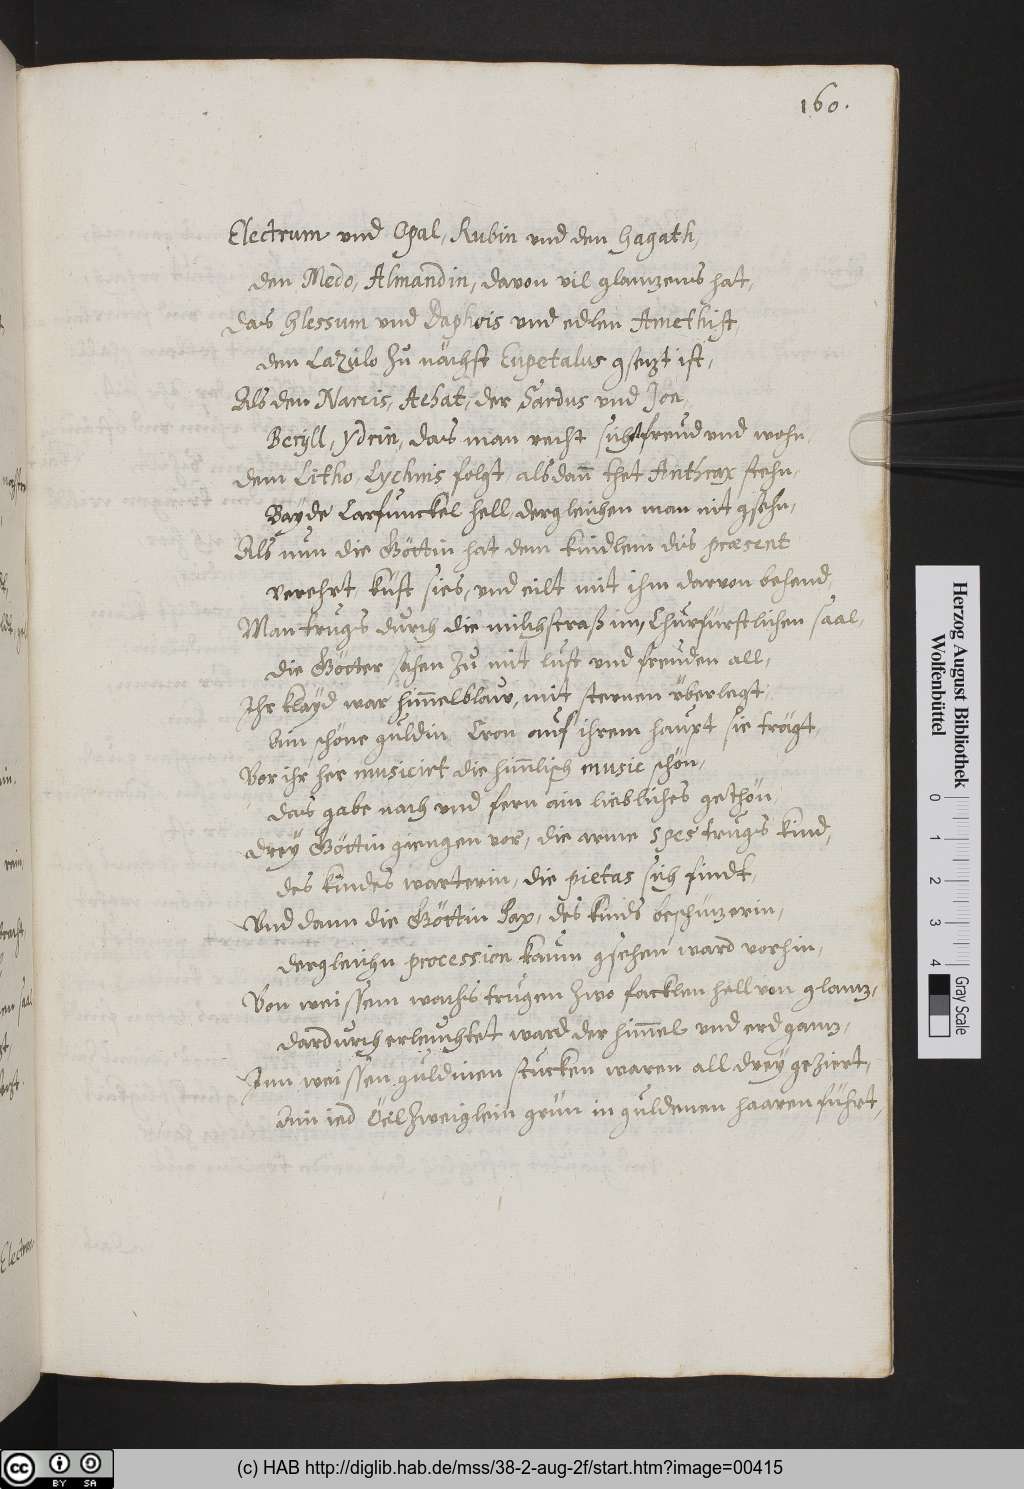 160.
Electrum und Opal, Rubin und den Gagath,
den Medo, Almandin, davon vil glantzens hat,
das Glessum und Daphois und edlen Amethist,
dem Lazulo zu nächst Eupetalus gsetzt ist,
Als den Narcis, Achat, der Sardus und Jon,
Berÿll, Ydrin, das man recht sich freud und wohn,
dem Litho Lychnis folgt, alsdañ thet Anthrax stehn,
Bayde Carfunckel hell, dergleichen man nit gsehn,
Als nun die Göttin hat dem kindlein dis præsent
verehrt, küst sies, und eilt mit ihm darvon behend,
Man trugs durch die milchstraß inn, Churfürstlichen saal,
die Götter sahen zu mit lust und freuden all,
Ihr klayd war him̃elblaw, mit sternen überlegt,
Ain schöne guldin Cron auf ihrem haupt sie trägt,
Vor ihr her musicirt die him̃lisch music schön,
das gabe nach und fern ain liebliches gethön,
dreÿ Göttin giengen vor, die arme Spes trugs kind,
des kindes warterin, die pietas sich findt,
Und dann die Göttin Pax, des kinds beschützerin,
dergleichn procession kaum gsehen ward vorhin,
Von weissem wachs trugen zwo facklen hell von glantz,
dardurch erleuchtet ward der him̃el und erd gantz,
Inn weissen guldinen stucken waren all dreÿ geziert,
Ain ied Öelzweiglein grün in guldenen haaren führt,
Electrum
Herzog August Bibliothek
Wolfenbüttel
0 1 2 3 4
Gray Scale
cc BY SA
(c) HAB http://diglib.hab.de/mss/38-2-aug-2f/start.htm?image=00415